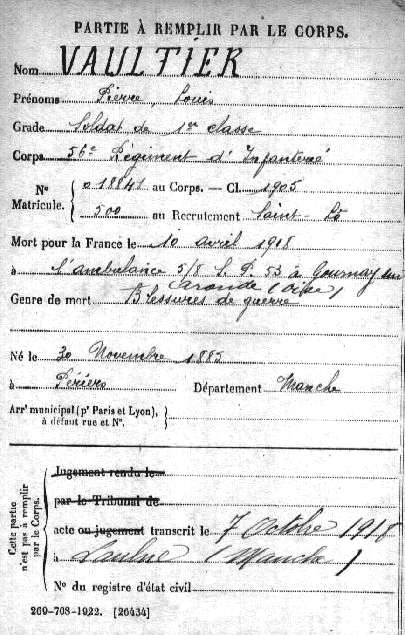 PARTIE À REMPLIR PAR LE CORPS.
Nom VAULTIER
Prénoms Pierre, Louis
Grade Soldat de 1re classe
Corps 56e Régiment d'Infanterie
N° Matricule. { 018841 au Corps. — Cl. 1905
500 au Recrutement Saint-Lô
Mort pour la France le 10 avril 1918
à l'ambulance 5/8 S. P. 53 à Gournay sur
Aronde (Oise)
Genre de mort Blessures de guerre
Né le 30 Novembre 1885
à Périers Département Manche
Arrt municipal (pr Paris et Lyon), à défaut rue et N°. {
Cette partie n'est pas à remplir par le Corps. {
Jugement rendu le
par le Tribunal de
acte ou jugement transcrit le 7 Octobre 1918
à Laulne (Manche)
N° du registre d'état civil
269-708-1922. [26434]